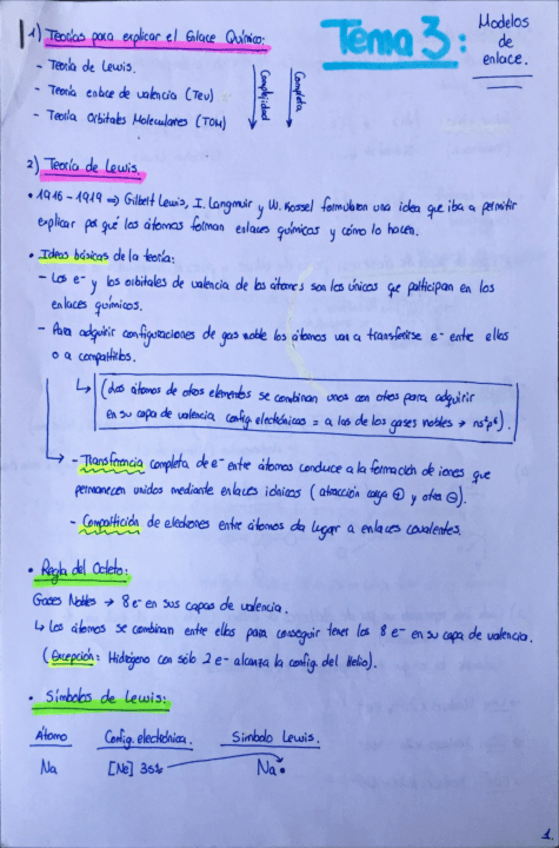 1) Teorías para explicar el Enlace Químico:
Tema 3:
Modelos
de
enlace.
- Teoría de Lewis.
- Teoría enlace de valencia (TEV)
- Teoría Orbitales Moleculares (TOM)
Complejidad
Completa
2) Teoría de Lewis.
• 1916-1919 ⇒ Gilbert Lewis, I. Langmuir y W. Kossel formularon una idea que iba a permitir
explicar por qué los átomos forman enlaces químicos y cómo lo hacen.
• Ideas básicas de la teoría:
- Los e- y los orbitales de valencia de los átomos son los únicos que participan en los
enlaces químicos.
- Para adquirir configuraciones de gas noble los átomos van a transferirse e- entre ellos
o a compartirlos.
↳ (Los átomos de otros elementos se combinan unos con otros para adquirir
en su capa de valencia config. electrónicas = a las de los gases nobles → ns²p⁶).
↳ - Transferencia completa de e- entre átomos conduce a la formación de iones que
permanecen unidos mediante enlaces iónicos (atracción carga ⊕ y otra ⊖).
- Compartición de electrones entre átomos da lugar a enlaces covalentes.
• Regla del Octeto:
Gases Nobles → 8 e- en sus capas de valencia.
↳ Los átomos se combinan entre ellos para conseguir tener los 8 e- en su capa de valencia.
(Excepción: Hidrógeno con sólo 2 e- alcanza la config. del Helio).
• Símbolos de Lewis:
Átomo Config. electrónica. Símbolo Lewis.
Na [Ne] 3s1 Na•
1.